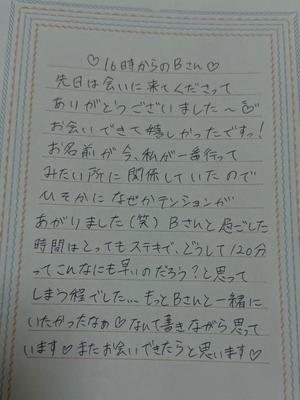 ♡16時からのBさん♡
先日は会いに来てくださって
ありがとうございました〜♡
お会いできて嬉しかったですっ!
お名前が今、私が一番行って
みたい所に関係していたので
ひそかになぜかテンションが
あがりました(笑) Bさんと過ごした
時間はとってもステキで、どうして120分
ってこんなにも早いのだろう?と思って
しまう程でした... もっとBさんと一緒に
いたかったなぁ♡なんて書きながら思って
います♡またお会いできたらと思います♡